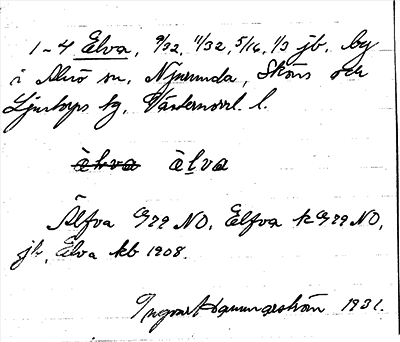 1-4 Elva, 9/32, 11/32, 5/16, 1/3 jb. by
i Alnö sn, Njurunda, Sköns och
Ljustorps tg, Västernorrl. l.
àhva àlva
Älfva 1729 NO, Elfva k 1729 NO,
jb, Elva kb 1908.
Ingvar 1931.